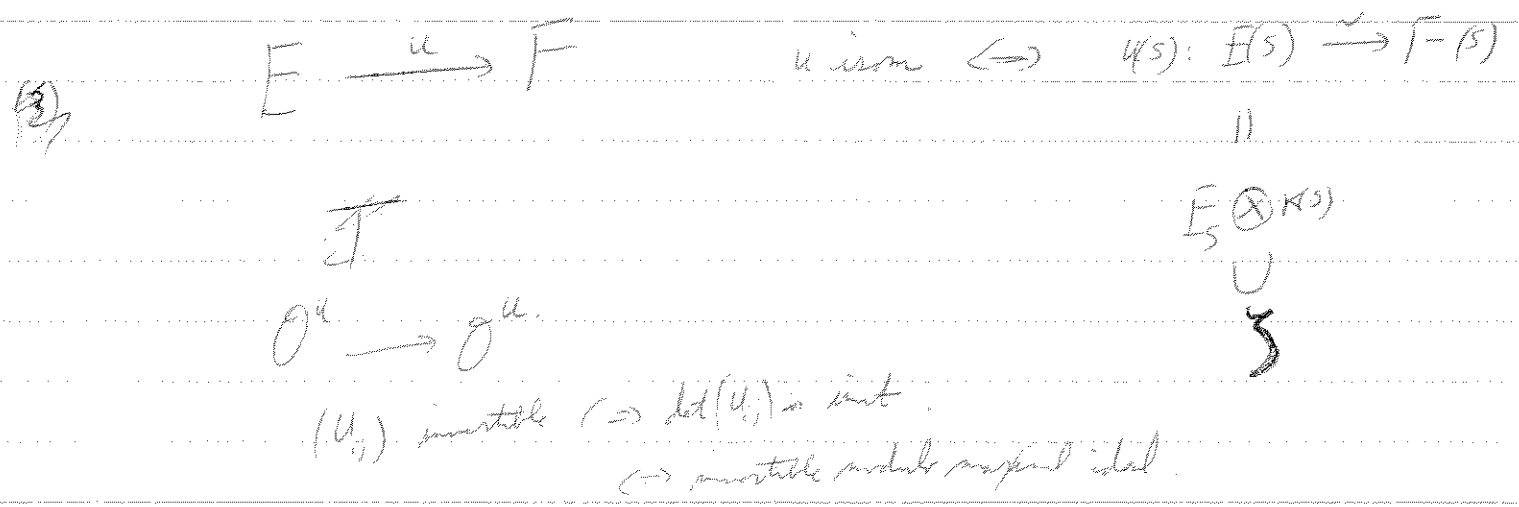 E \xrightarrow{u} F    u isom ⟺ u(s): E(s) \xrightarrow{\sim} F(s)
||
E_s ⊗ k(s)
∪
O^n ⟶ O^n.
(u_{ij}) invertible ⟺ det(u_{ij}) is invt.
⟺ invertible modulo maximal ideal.